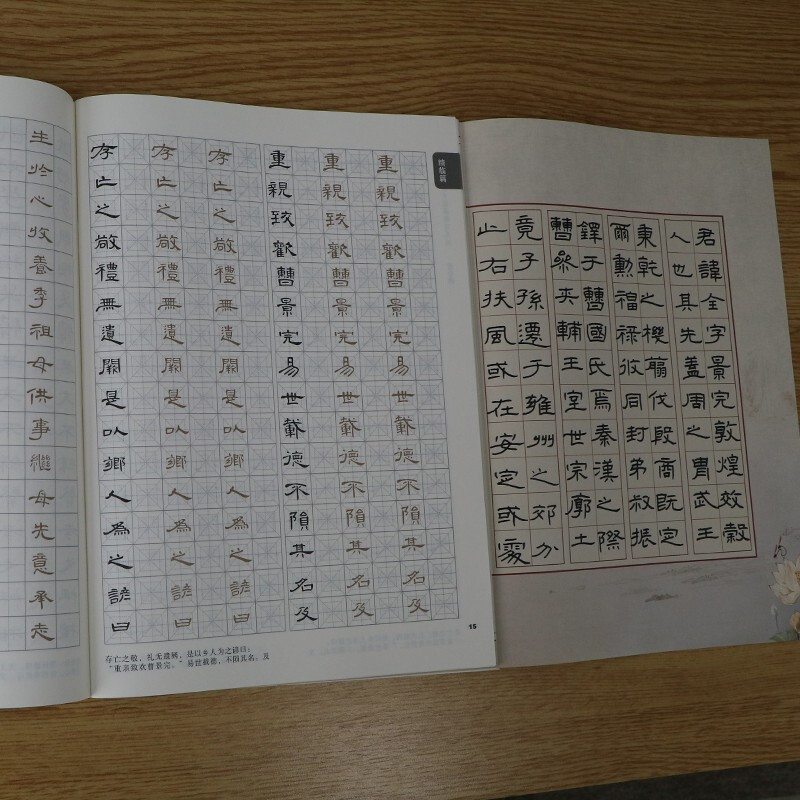 生於心收養季祖母供事繼母先意承志
存亡之敬禮無遺闕是以鄉人為之諺曰
存亡之敬禮無遺闕是以鄉人為之諺曰
存亡之敬禮無遺闕是以鄉人為之諺曰
重親致歡曹景完易世載德不隕其名及
重親致歡曹景完易世載德不隕其名及
重親致歡曹景完易世載德不隕其名及
精临篇
存亡之敬，礼无遗阙，是以乡人为之谚曰：
“重亲致欢曹景完。”易世载德，不陨其名。及
15
君諱全字景完敦煌效穀
人也其先蓋周之胄武王
秉乾之機翦伐殷商既定
爾勳福祿攸同封弟叔振
鐸于曹國氏焉秦漢之際
曹參夾輔王室世宗廓土
竟子孫遷于雍州之郊分
止右扶風或在安定或處